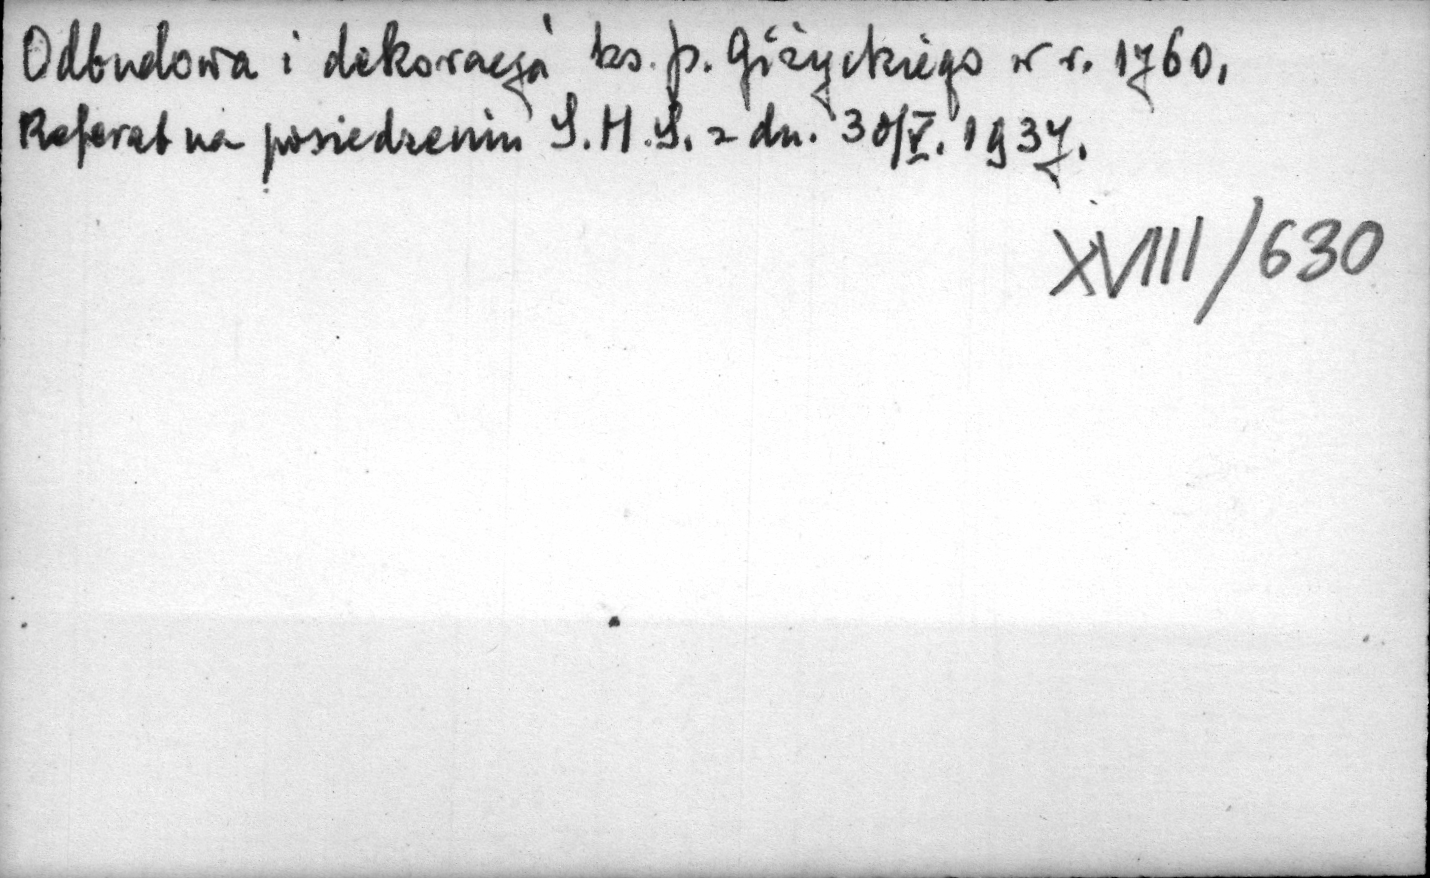 Odbudowa i dekoracja ks. p. Giżyckiego w r. 1760.
Referat na posiedzeniu S.H.S. z dn. 30/V. 1937.
XVIII/630